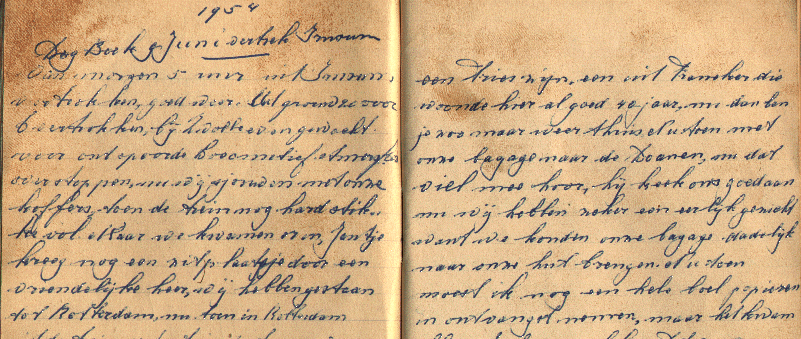 1954
Dag Boek 9 Juni vertrek Irnsum
morgen 5 uur uit Irnsum
vertrokken, goed weer. Uit grouw 20 over
6 vertrokken, bij Zwolle even gewacht
voor ontspoorde locomotief, Amersfoort
overstappen, nu wij sjouwen met onze
koffers, toen de trein nog hard stik
ke vol. Maar we kwamen er in, Jantje
kreeg nog een zitplaatsje door een
vriendelijke heer, wij hebben gestaan
tot Rotterdam, nu toen in Rotterdam
een fries zijn, een uit Franeker die
woonde hier al goed 40 jaar, nu dan ben
je zoo maar weer thuis. Nu toen met
onze bagage naar de Doanen, nu dat
viel mee hoor, hij keek ons goed aan
nu wij hebben zeker een eerlijk gezicht
want we konden onze bagage dadelijk
naar onze hut brengen. Nu toen
moest ik nog een hele boel papieren
in ontvangst nemen, maar het kwam